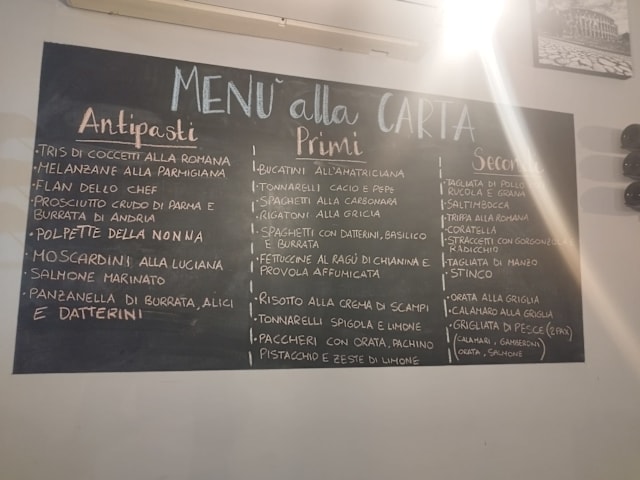 MENÙ alla CARTA
Antipasti
• TRIS DI COCCETTI ALLA ROMANA
• MELANZANE ALLA PARMIGIANA
• FLAN DELLO CHEF
• PROSCIUTTO CRUDO DI PARMA E
BURRATA DI ANDRIA
• POLPETTE DELLA NONNA
• MOSCARDINI ALLA LUCIANA
• SALMONE MARINATO
• PANZANELLA DI BURRATA, ALICI
E DATTERINI
Primi
• BUCATINI ALL'AMATRICIANA
• TONNARELLI CACIO E PEPE
• SPAGHETTI ALLA CARBONARA
• RIGATONI ALLA GRICIA
• SPAGHETTI CON DATTERINI, BASILICO
E BURRATA
• FETTUCCINE AL RAGÙ DI CHIANINA E
PROVOLA AFFUMICATA
• RISOTTO ALLA CREMA DI SCAMPI
• TONNARELLI SPIGOLA E LIMONE
• PACCHERI CON ORATA, PACHINO
PISTACCHIO E ZESTE DI LIMONE
Secondi
• TAGLIATA DI POLLO
RUCOLA E GRANA
• SALTIMBOCCA
• TRIPPA ALLA ROMANA
• CORATELLA
• STRACCETTI CON GORGONZOLA E
RADICCHIO
• TAGLIATA DI MANZO
• STINCO
• ORATA ALLA GRIGLIA
• CALAMARO ALLA GRIGLIA
• GRIGLIATA DI PESCE (2 PAX)
(CALAMARI, GAMBERONI
ORATA, SALMONE)